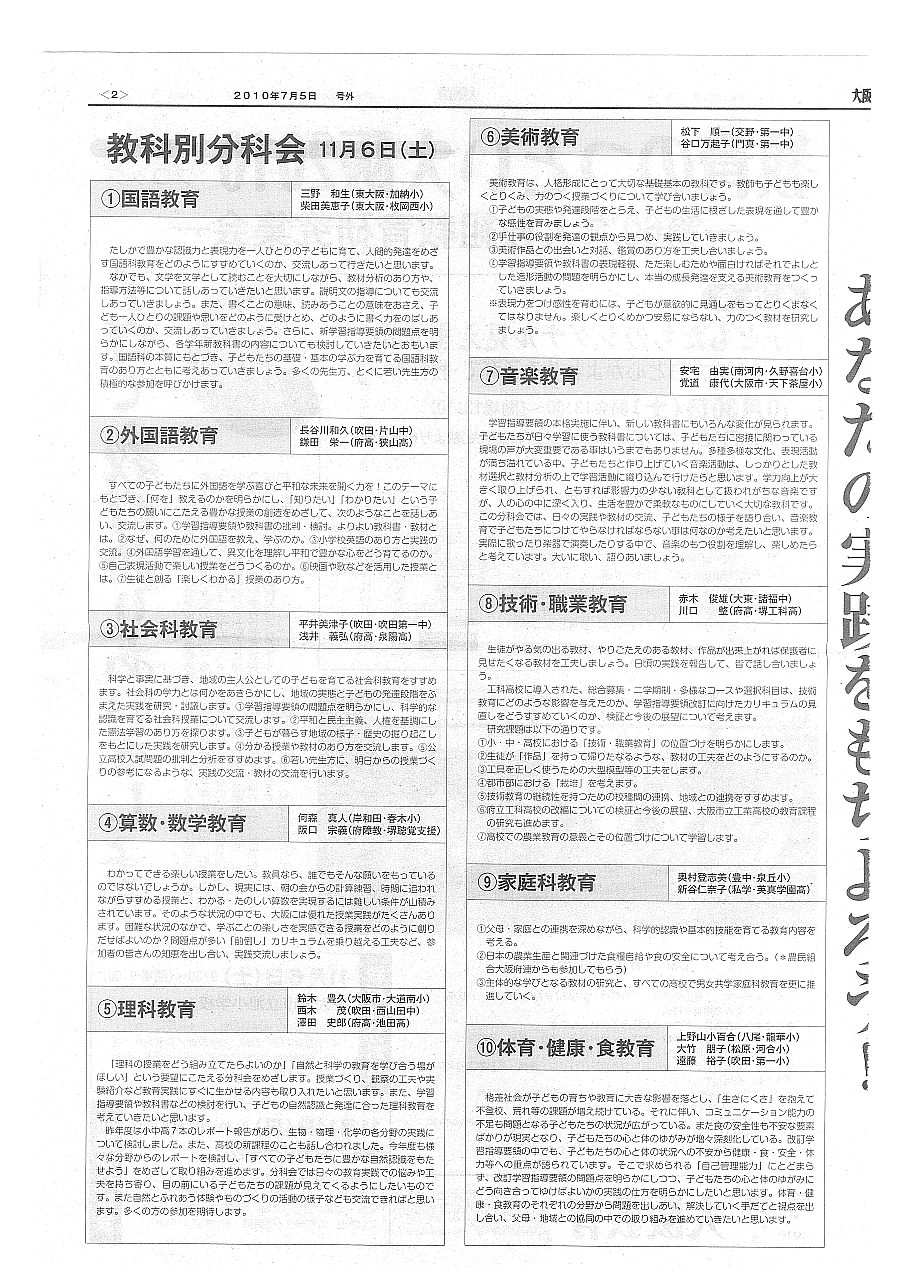 <2>
2010年7月5日 号外
大阪
教科別分科会 11月6日(土)
①国語教育
三野 和生(東大阪・加納小)
柴田美恵子(東大阪・枚岡西小)
たしかで豊かな認識力と表現力を一人ひとりの子どもに育て、人間的発達をめざ
す国語科教育をどのようにすすめていくのか、交流しあって行きたいと思います。
なかでも、文学を文学として読むことを大切にしながら、教材分析のあり方や、
指導方法等について話しあっていきたいと思います。説明文の指導についても交流
しあっていきましょう。また、書くことの意味、読みあうことの意味をおさえ、子
ども一人ひとりの課題や思いをどのように受けとめ、どのように書く力をのばしあ
っていくのか、交流しあっていきましょう。さらに、新学習指導要領の問題点を明
らかにしながら、各学年新教科書の内容についても検討していきたいとおもいま
す。国語科の本質にもとづき、子どもたちの基礎・基本の学ぶ力を育てる国語科教
育のあり方とともに考えあっていきましょう。多くの先生方、とくに若い先生方の
積極的な参加を呼びかけます。
②外国語教育
長谷川和久(吹田・片山中)
鎌田 栄一(府高・狭山高)
すべての子どもたちに外国語を学ぶ喜びと平和な未来を開く力を!このテーマに
もとづき、「何を」教えるのかを明らかにし、「知りたい」「わかりたい」という子
どもたちの願いにこたえる豊かな授業の創造をめざして、次のようなことを話しあ
い、交流します。①学習指導要領や教科書の批判・検討。よりよい教科書・教材と
は。②なぜ、何のために外国語を教え、学ぶのか。③小学校英語のあり方と実践の
交流。④外国語学習を通して、異文化を理解し平和で豊かな心をどう育てるのか。
⑤自己表現活動で楽しい授業をどうつくるのか。⑥映画や歌などを活用した授業と
は。⑦生徒と創る「楽しくわかる」授業のあり方。
③社会科教育
平井美津子(吹田・吹田第一中)
浅井 義弘(府高・泉陽高)
科学と事実に基づき、地域の主人公としての子どもを育てる社会科教育をすすめ
ます。社会科の学力とは何かをあきらかにし、地域の実態と子どもの発達段階をふ
まえた実践を研究・討議します。①学習指導要領の問題点を明らかにし、科学的な
認識を育てる社会科授業について交流します。②平和と民主主義、人権を基調にし
た憲法学習のあり方を探ります。③子どもが暮らす地域の様子・歴史の掘り起こし
をもとにした実践を研究します。④分かる授業や教材のあり方を交流します。⑤公
立高校入試問題の批判と分析をすすめます。⑥若い先生方に、明日からの授業づく
りの参考になるような、実践の交流・教材の交流を行います。
④算数・数学教育
何森 真人(岸和田・春木小)
阪口 宗義(府障教・堺聴覚支援)
わかってできる楽しい授業をしたい。教員なら、誰でもそんな願いをもっている
のではないでしょうか。しかし、現実には、朝の会からの計算練習、時間に追われ
ながらすすめる授業と、わかる・たのしい算数を実現するには難しい条件が山積み
されています。そのような状況の中でも、大阪には優れた授業実践がたくさんあり
ます。困難な状況のなかで、学ぶことの楽しさを実感できる授業をどのように創り
だせばよいのか?問題点が多い「前倒し」カリキュラムを乗り越える工夫など、参
加者の皆さんの知恵を出し合い、実践交流しましょう。
⑤理科教育
鈴木 豊久(大阪市・大道南小)
西木 茂(吹田・西山田中)
澤田 史郎(府高・池田高)
「理科の授業をどう組み立てたらよいのか」「自然と科学の教育を学び合う場が
ほしい」という要望にこたえる分科会をめざします。授業づくり、観察の工夫や実
験紹介など教育実践にすぐに生かせる内容も取り入れたいと思います。また、学習
指導要領や教科書などの検討を行い、子どもの自然認識と発達に合った理科教育を
考えていきたいと思います。
昨年度は小中高7本のレポート報告があり、生物・物理・化学の各分野の実践に
ついて検討しました。また、高校の新課程のことも話し合われました。今年度も様
々な分野からのレポートを検討し、「すべての子どもたちに豊かな自然認識をもた
せよう」をめざして取り組みを進めます。分科会では日々の教育実践での悩みや工
夫を持ち寄り、目の前にいる子どもたちの課題が見えてくるようにしたいもので
す。また自然とふれあう体験やものづくりの活動の様子なども交流できればと思い
ます。多くの方の参加を期待します。
⑥美術教育
松下 順一(交野・第一中)
谷口万起子(門真・第一中)
美術教育は、人格形成にとって大切な基礎基本の教科です。教師も子どもも楽し
くとりくみ、力のつく授業づくりについて学び合いましょう。
①子どもの実態や発達段階をとらえ、子どもの生活に根ざした表現を通して豊か
な感性を育みましょう。
②手仕事の役割を発達の観点から見つめ、実践していきましょう。
③美術作品との出会いと対話、鑑賞のあり方を工夫し合いましょう。
④学習指導要領や教科書の表現軽視、ただ楽しむためや面白ければそれでよしと
した造形活動の問題を明らかにし、本当の成長発達を支える美術教育をつくっ
ていきましょう。
※表現力をつけ感性を育むには、子どもが意欲的に見通しをもってとりくまなく
てはなりません。楽しくとりくめかつ安易にならない、力のつく教材を研究し
ましょう。
⑦音楽教育
安宅 由実(南河内・久野喜台小)
覚道 康代(大阪市・天下茶屋小)
学習指導要領の本格実施に伴い、新しい教科書にもいろんな変化が見られます。
子どもたちが日々学習に使う教科書については、子どもたちに密接に関わっている
現場の声が大変重要である事はいうまでもありません。多種多様な文化、表現活動
が満ち溢れている中、子どもたちと作り上げていく音楽活動は、しっかりとした教
材選択と教材分析の上で学習活動に織り込んで行けたらと思います。学力向上が大
きく取り上げられ、ともすれば影響力の少ない教科として扱われがちな音楽です
が、人の心の中に深く入り、生活を豊かで柔軟なものにしていく大切な教科です。
この分科会では、日々の実践や教材の交流、子どもたちの様子を語り合い、音楽教
育で子どもたちにつけてやらなければならない事は何なのか考えたいと思います。
実際に歌ったり楽器で演奏したりする中で、音楽のもつ役割を理解し、楽しめたら
と考えています。大いに歌い、語りあいましょう。
⑧技術・職業教育
赤木 俊雄(大東・諸福中)
川口 整(府高・堺工科高)
生徒がやる気の出る教材、やりごたえのある教材、作品が出来上がれば保護者に
見せたくなる教材を工夫しましょう。日頃の実践を報告して、皆で話し合いましょ
う。
工科高校に導入された、総合募集・二学期制・多様なコースや選択科目は、技術
教育にどのような影響を与えたのか、学習指導要領改訂に向けたカリキュラムの見
直しをどうすすめていくのか、検証と今後の展望について考えます。
研究課題は以下の通りです。
①小・中・高校における「技術・職業教育」の位置づけを明らかにします。
②生徒が「作品」を持って帰りたくなるような、教材の工夫をどのようにするのか。
③工具を正しく使うための大型模型等の工夫をします。
④都市部における「栽培」を考えます。
⑤技術教育の継続性を持つための校種間の連携、地域との連携をすすめます。
⑥府立工科高校の改編についての検証と今後の展望、大阪市立工業高校の教育課程
の研究も進めます。
⑦高校での農業教育の意義とその位置づけについて学習します。
⑨家庭科教育
奥村登志美(豊中・泉丘小)
新谷仁奈子(私学・英真学園高)
①父母・家庭との連携を深めながら、科学的認識や基本的技能を育てる教育内容を
考える。
②日本の農業生産と関連づけた食糧自給や食の安全について考え合う。(＊農民組
合大阪府連からも参加してもらう)
③主体的な学びとなる教材の研究と、すべての高校で男女共学家庭科教育を更に推
進していく。
⑩体育・健康・食教育
上野山小百合(八尾・龍華小)
大竹 朋子(松原・河合小)
遠藤 裕子(吹田・第一小)
格差社会が子どもの育ちや教育に大きな影響を落とし、「生きにくさ」を抱えて
不登校、荒れ等の課題が増え続けている。それに伴い、コミュニケーション能力の
不足も問題となる子どもたちの状況が広がっている。また食の安全性も不安な要素
ばかりが現実となり、子どもたちの心と体のゆがみが増々深刻化している。改訂学
習指導要領の中でも、子どもたちの心と体の状況への不安から健康・食・安全・体
力等への重点が語られています。そこで求められる「自己管理能力」にとどまら
ず、改訂学習指導要領の問題点を明らかにしつつ、子どもたちの心と体のゆがみに
どう向き合ってゆけばよいかの実践の仕方を明らかにしたいと思います。体育・健
康・食教育のそれぞれの分野から問題を出しあい、解決していく手だてと視点を出
し合い、父母・地域との協同の中での取り組みを進めていきたいと思います。
あなたの実践をもちよろう